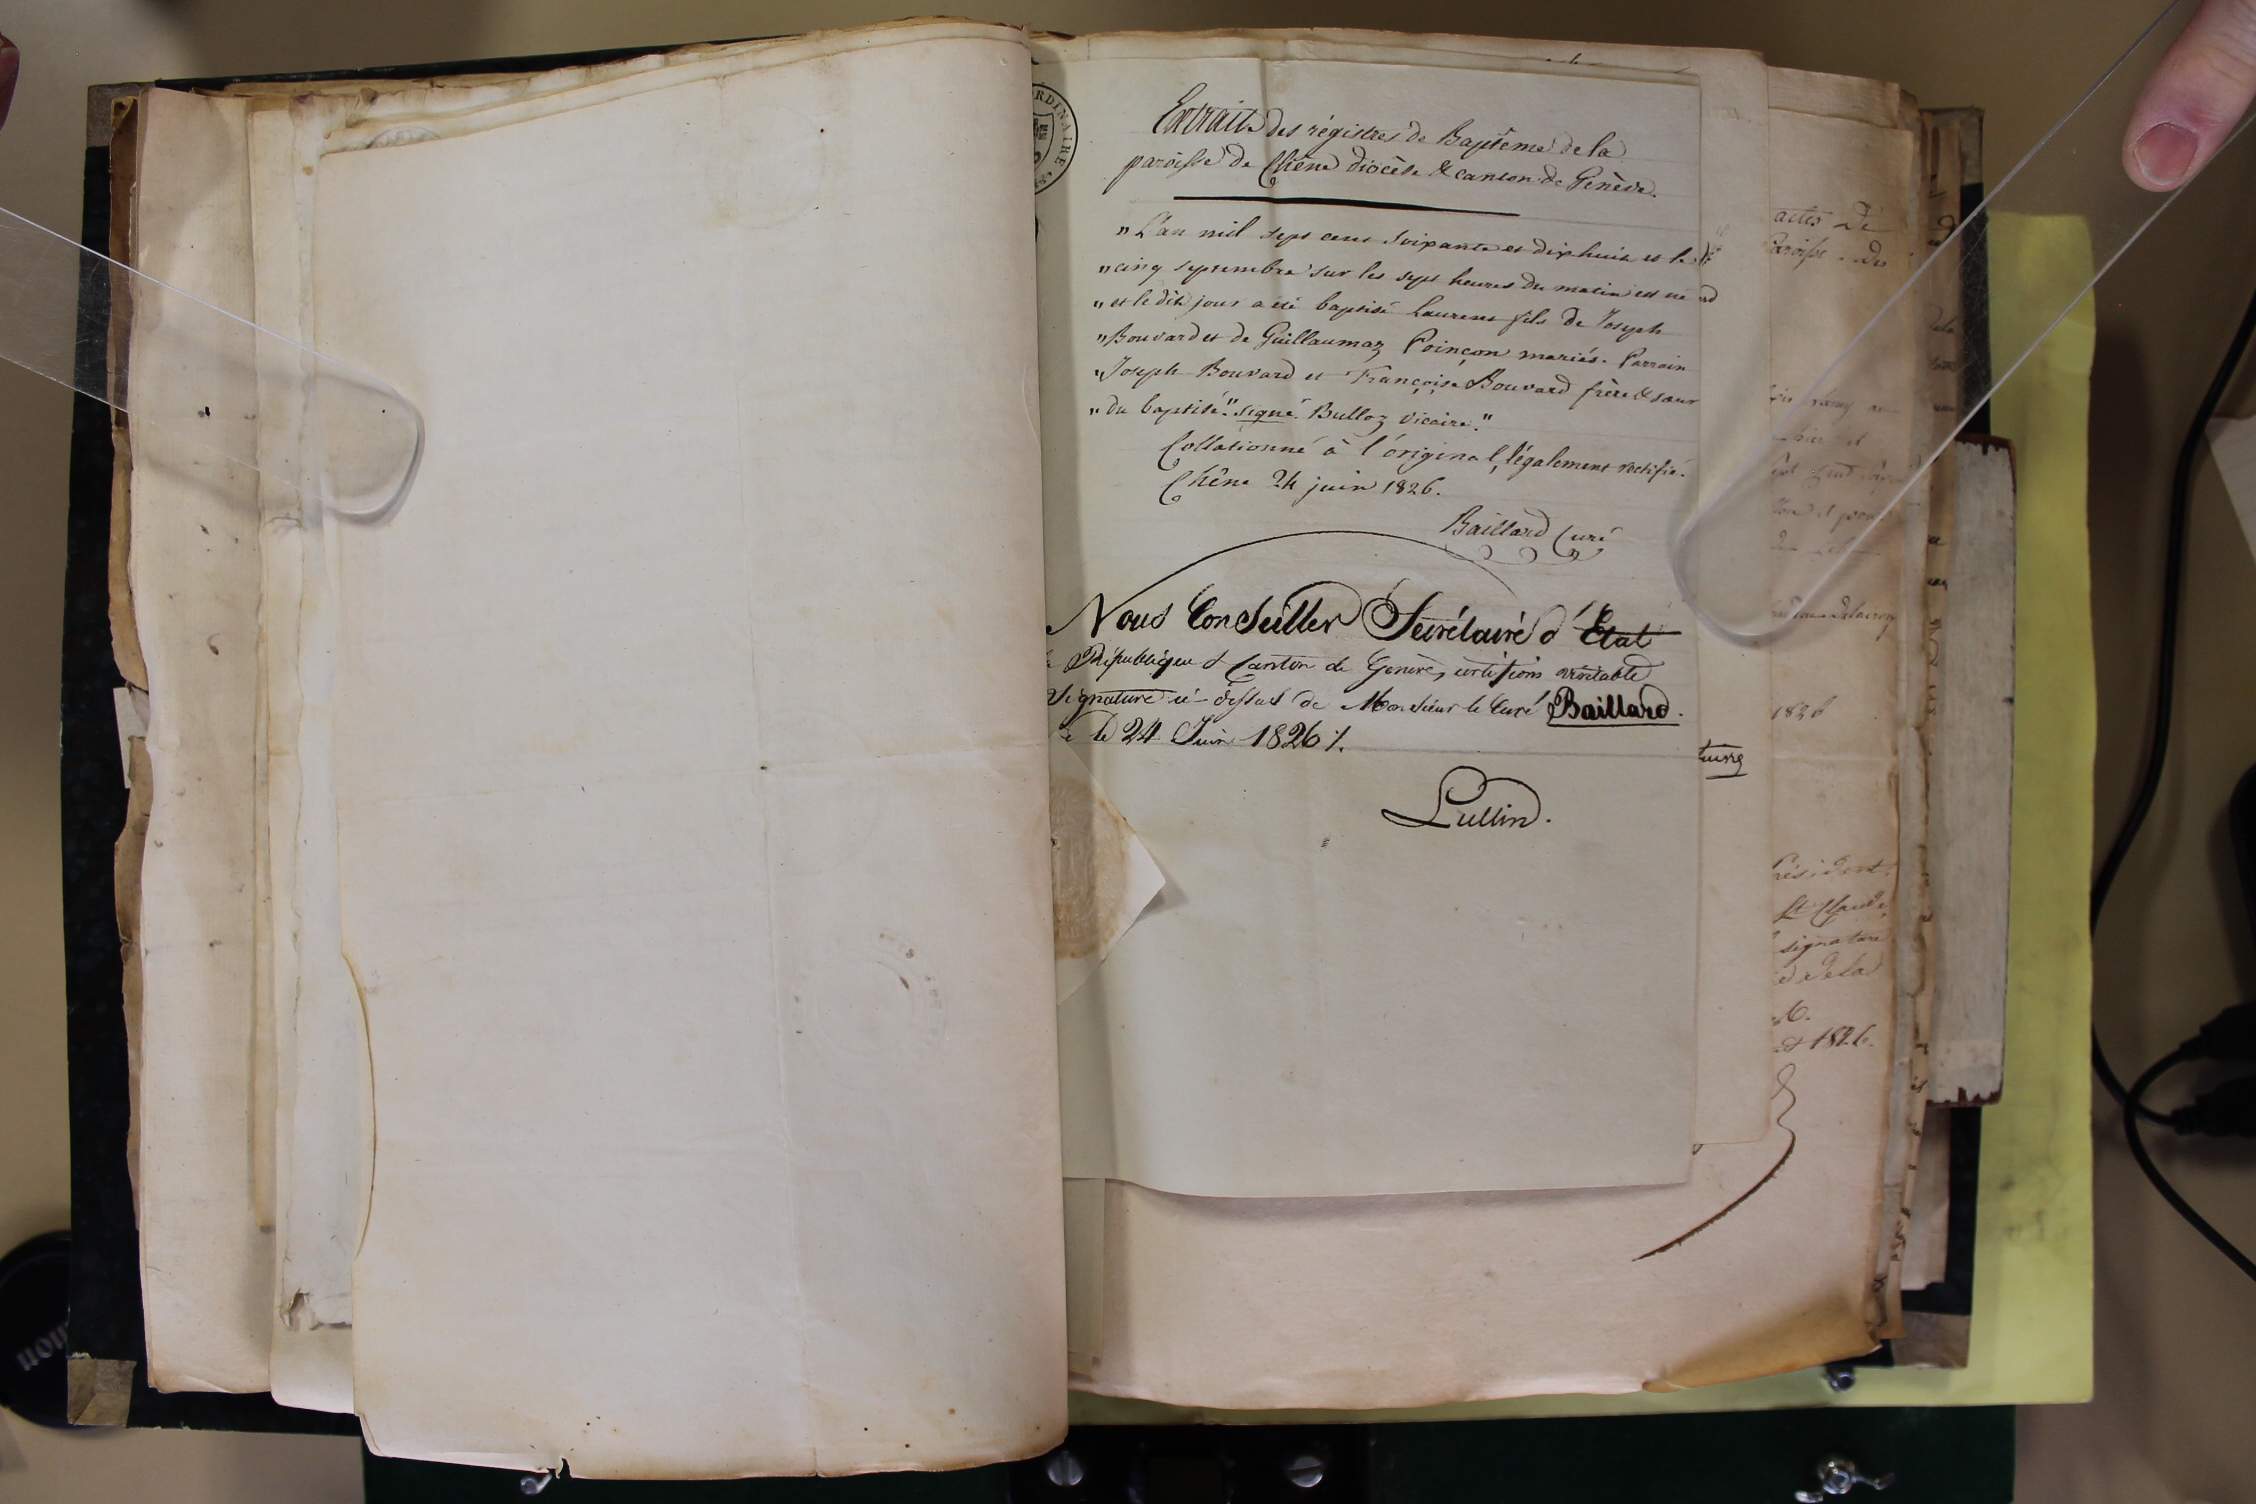 Extrait des régistres de Baptême de la
paroisse de Chêne diocèse & canton de Genève.
"L'an mil sept cent soixante et dixhuit et le
"cinq septembre sur les sept heures du matin est né
"et le dit jour a été baptisé Laurent fils de Joseph
"Bouvard et de Guillaumaz Poinçon mariés. Parrain
"Joseph Bouvard et Françoise Bouvard frère & sœur
"du baptisé." signé Bulloz vicaire."
Collationné à l'original, légalement rectifié.
Chêne 24 juin 1826.
Baillard Curé
Nous Conseiller Secrétaire d'État
République & Canton de Genève, certifions véritable
Signature ci-dessus de Monsieur le Curé Baillard.
le 24 Juin 1826 %.
Lullin.
actes De
Paroisse
1826
Président
St Claude
signature
De la
1826.